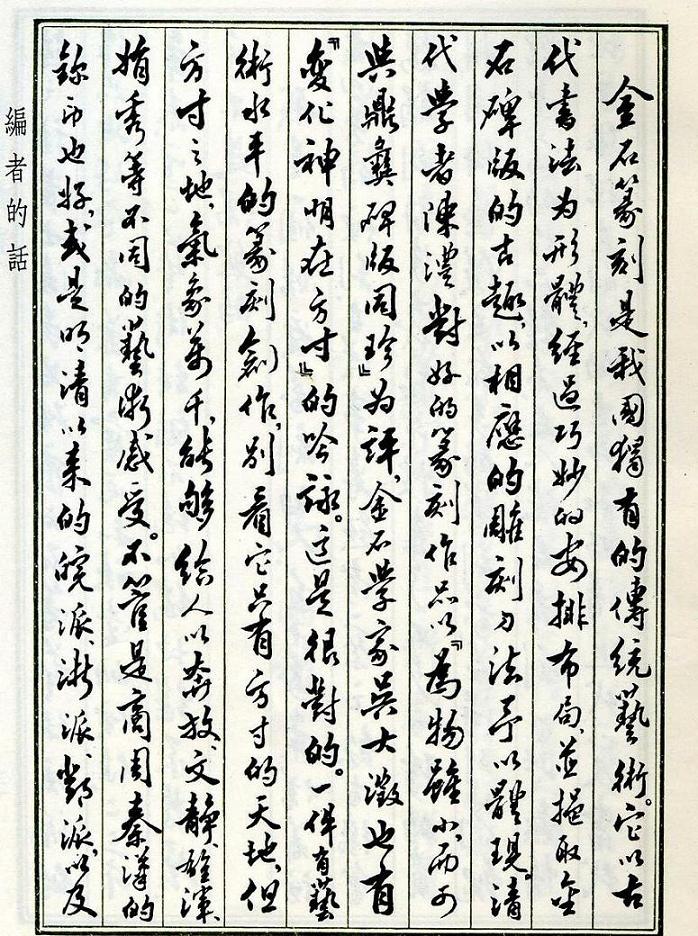 金石篆刻是我國獨有的傳統藝術。它以古
代書法为形體,經過巧妙的安排布局,並掘取金
石碑版的古趣,以相應的雕刻刀法予以體現。清
代學者陳澧對好的篆刻作品以『為物雖小,而可
與鼎彝碑版同珍』为評,金石學家吳大澂也有
『變化神明在方寸』的吟詠。这是很對的。一件有藝
術水平的篆刻創作,别看它只有方寸的天地,但
方寸之地,氣象萬千,能够给人以奔放、文静、雄渾、
娟秀等不同的藝術感受。不管是商周秦漢的
鉨印也好,或是明清以来的皖派、浙派、鄧派,以及
編者的話